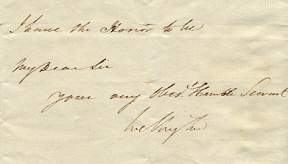 I have the Honor to be
My Dear Sir
your very Obed.t Humble Servant